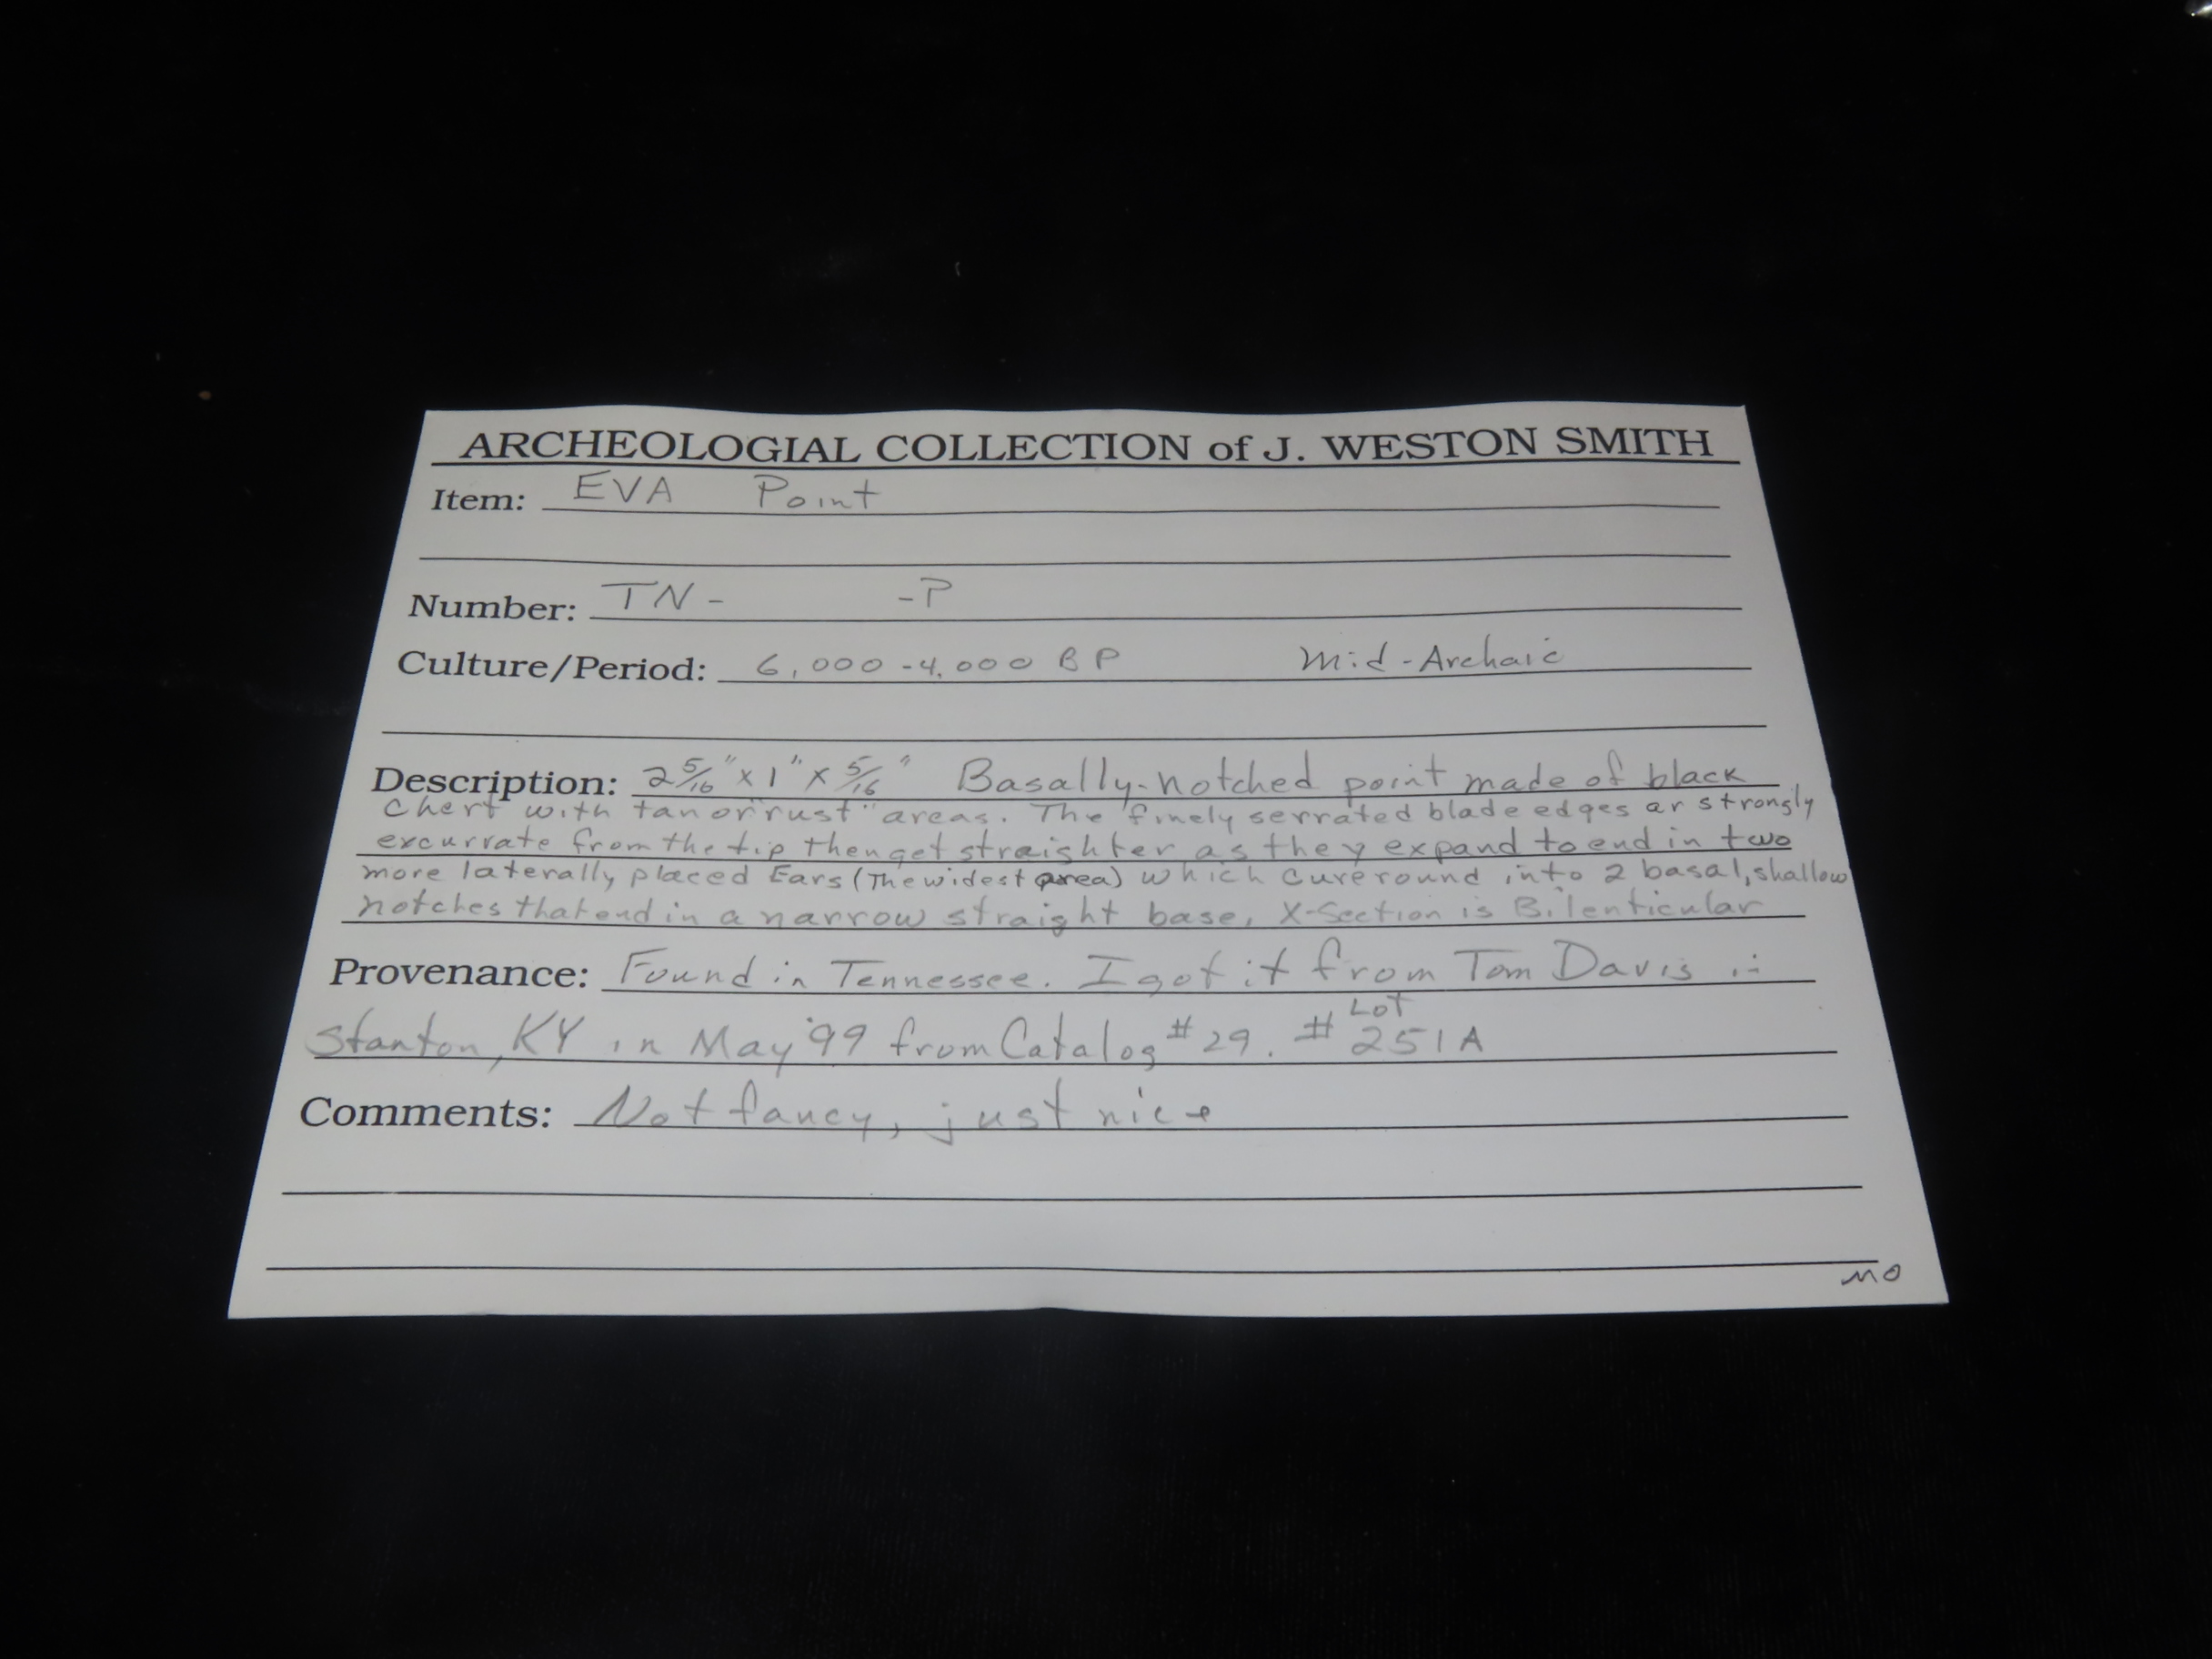 ARCHEOLOGIAL COLLECTION of J. WESTON SMITH
Item: EVA Point
Number: TN- -P
Culture/Period: 6,000-4,000 BP Mid-Archaic
Description: 2 5/16" x 1" x 5/16" Basally-notched point made of black
chert with tan or "rust" areas. The finely serrated blade edges ar strongly
excurrate from the tip then get straighter as they expand to end in two
more laterally placed Ears (The widest area) which cure round into 2 basal, shallow
notches that end in a narrow straight base, X-Section is Bilenticular
Provenance: Found in Tennessee. I got it from Tom Davis in
Stanton, KY in May '99 from Catalog #29. # Lot 251A
Comments: Not fancy, just nice
MO